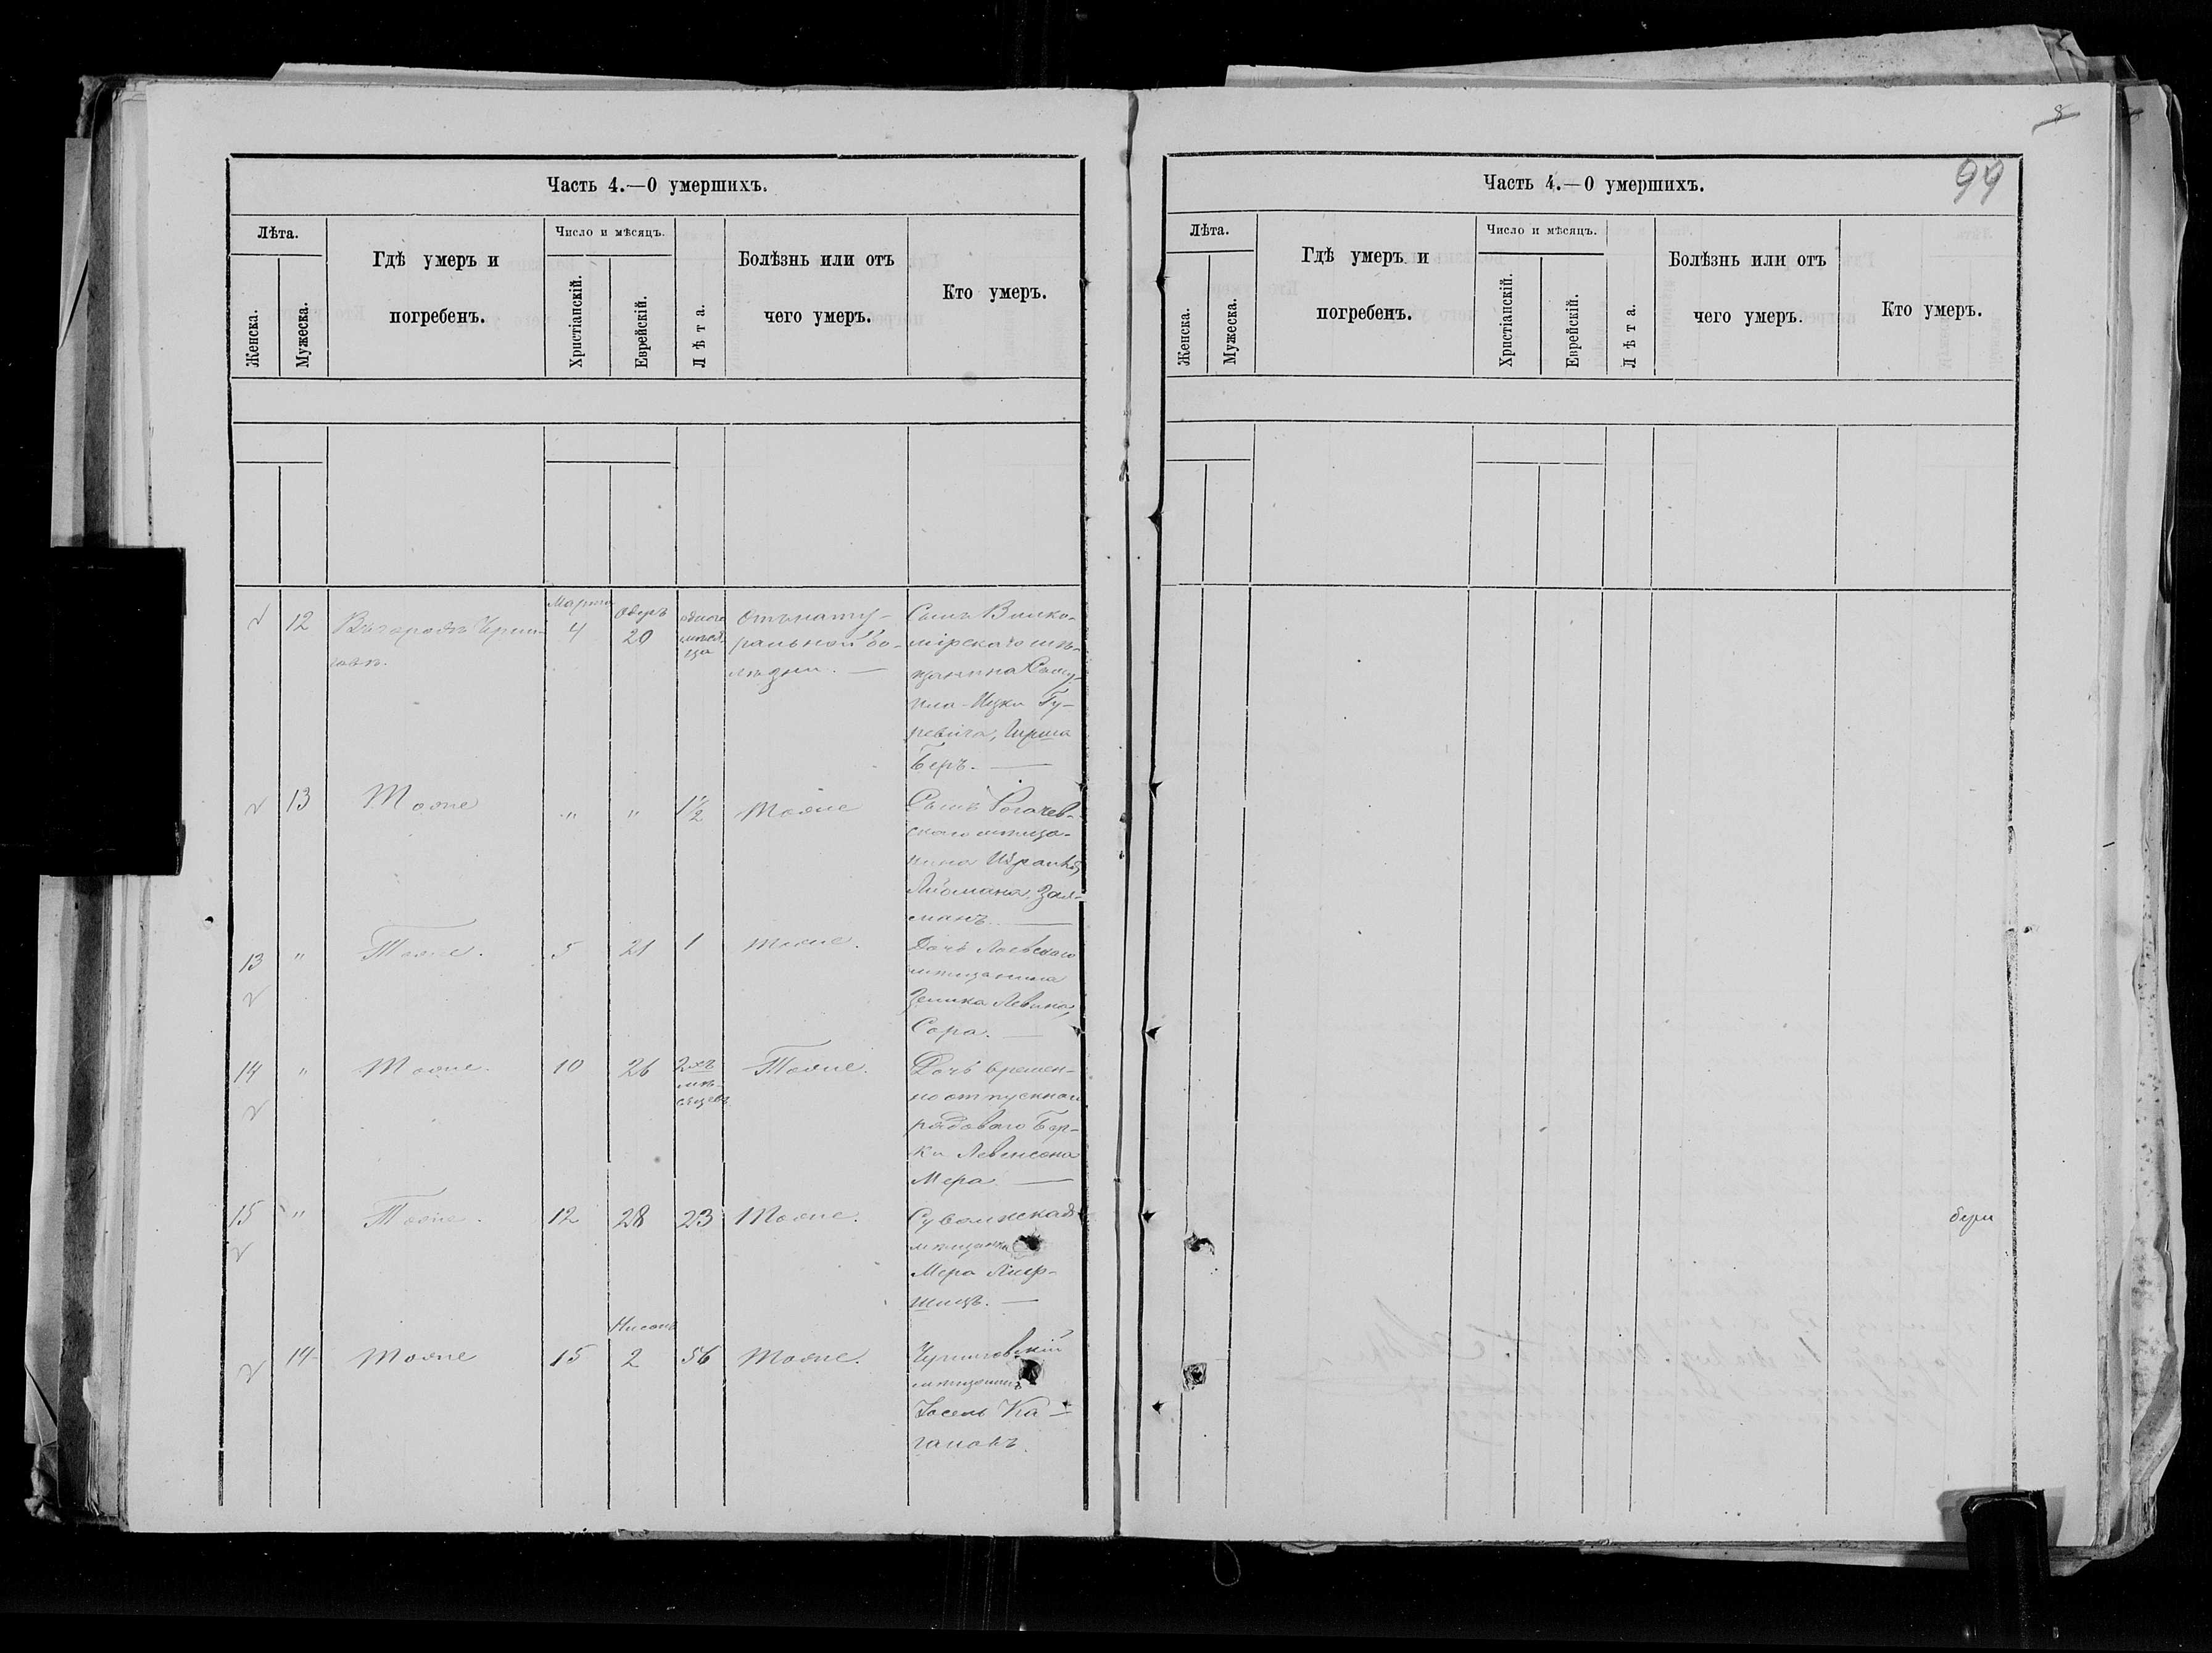 Часть 4.—О умершихъ.
Лѣта.
Женска.
Мужеска.
Гдѣ умеръ и
погребенъ.
Число и мѣсяцъ.
Христіанскій.
Еврейскій.
Лѣта.
Болѣзнь или отъ
чего умеръ.
Кто умеръ.
12
Въ городѣ Черни-
говѣ.
Марта
4
Адеръ
20
одного
мѣся-
ца
Отъ нату-
ральной бо-
лѣзни. —
Сынъ Вилко-
мірскаго мѣ-
щанина Саму-
ила-Ицки Гу-
ревича, Гирша
Беръ. —
13
Тоже
"
"
1½
Тоже
Сынъ Рогачев-
скаго мѣща-
нина Израиля
Либмана, Зал-
манъ. —
13
"
Тоже.
5
21
1
Тоже.
Дочь Лоевскаго
мѣщанина
Зелика Левина,
Сора. —
14
"
Тоже.
10
26
2хъ
мѣ-
сяцевъ
Тоже.
Дочь времен-
но отпускнаго
рядоваго Бер-
ки Левенсона
Мера —
15
"
Тоже.
12
28
23
Тоже.
Сувалкская
мѣщанка
Мера Лиф-
шицъ. —
14
Тоже
15
Нисонъ
2
56
Тоже.
Черниговскій
мѣщанинъ
Іосель Ка-
гановъ.
8
99
Часть 4.—О умершихъ.
Лѣта.
Женска.
Мужеска.
Гдѣ умеръ и
погребенъ.
Число и мѣсяцъ.
Христіанскій.
Еврейскій.
Лѣта.
Болѣзнь или отъ
чего умеръ.
Кто умеръ.